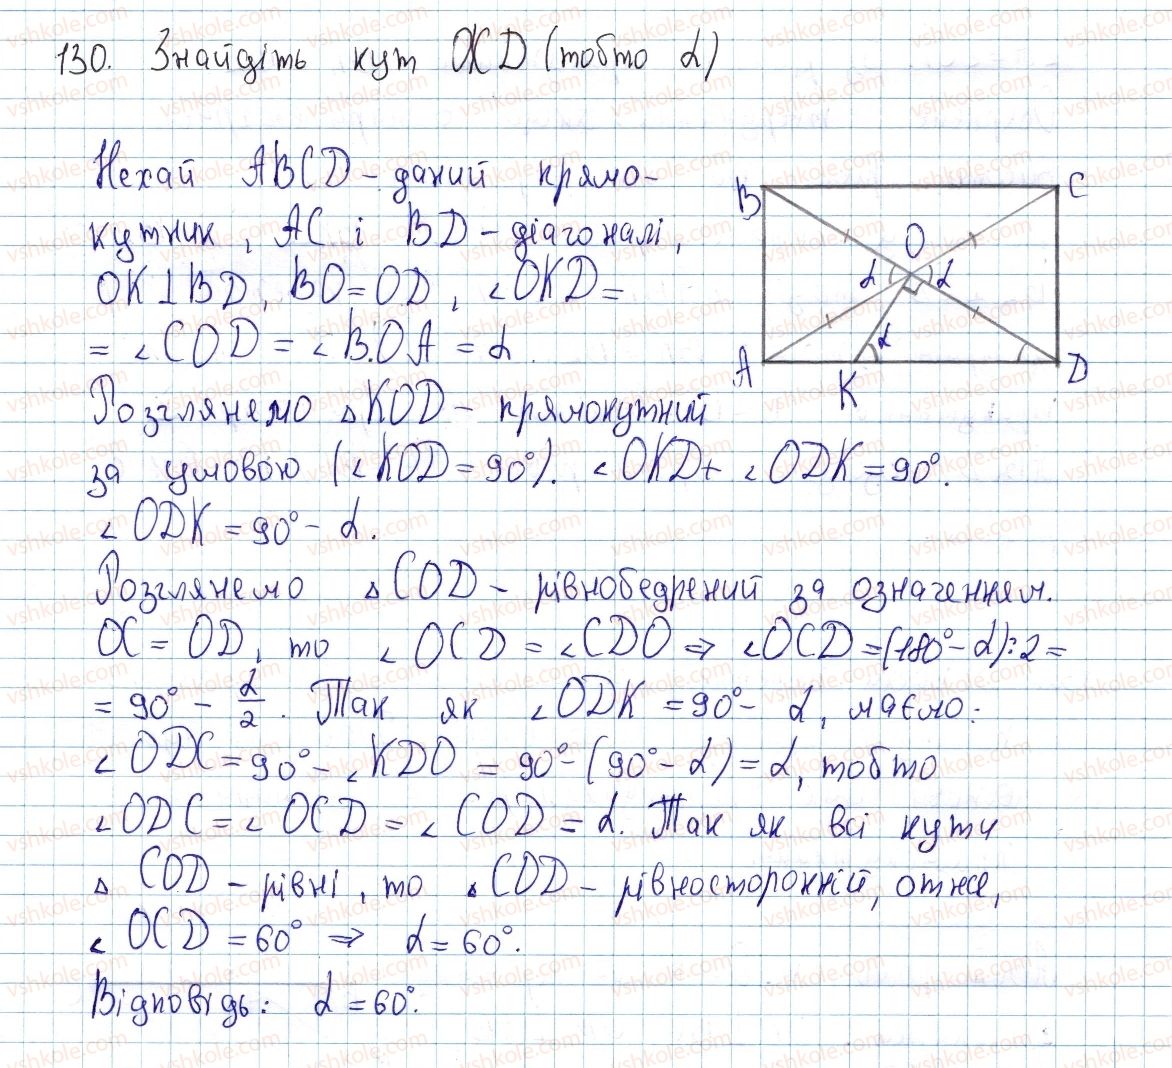 130. Знайдіть кут OCD (тобто α)
Нехай ABCD - даний прямо-
кутник, AC і BD - діагоналі,
OK⊥BD, BO=OD, ∠OKD=
= ∠COD = ∠BOA = α.
Розглянемо △KOD - прямокутний
за умовою (∠KOD = 90°). ∠OKD + ∠ODK = 90°.
∠ODK = 90° - α.
Розглянемо △COD - рівнобедрений за означенням.
OC = OD, то ∠OCD = ∠CDO ⇒ ∠OCD = (180° - α):2 =
= 90° - α/2. Так як ∠ODK = 90° - α, маємо:
∠ODC = 90° - ∠KDO = 90° - (90° - α) = α, тобто
∠ODC = ∠OCD = ∠COD = α. Так як всі кути
△COD - рівні, то △COD - рівносторонній, отже,
∠OCD = 60° ⇒ α = 60°.
Відповідь: α = 60°.
B
C
O
α
α
α
A
K
D
vshkole.com